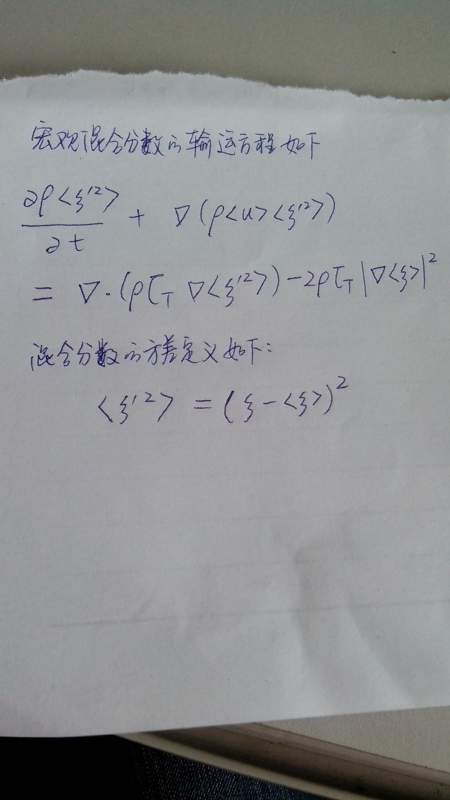 宏观混合分数的输运方程如下
∂ρ<ξ'²>/∂t + ∇(ρ<u><ξ'²>)
= ∇·(ρΓ_T ∇<ξ'²>)-2ρΓ_T|∇<ξ>|²
混合分数的方差定义如下:
<ξ'²> = (ξ-<ξ>)²